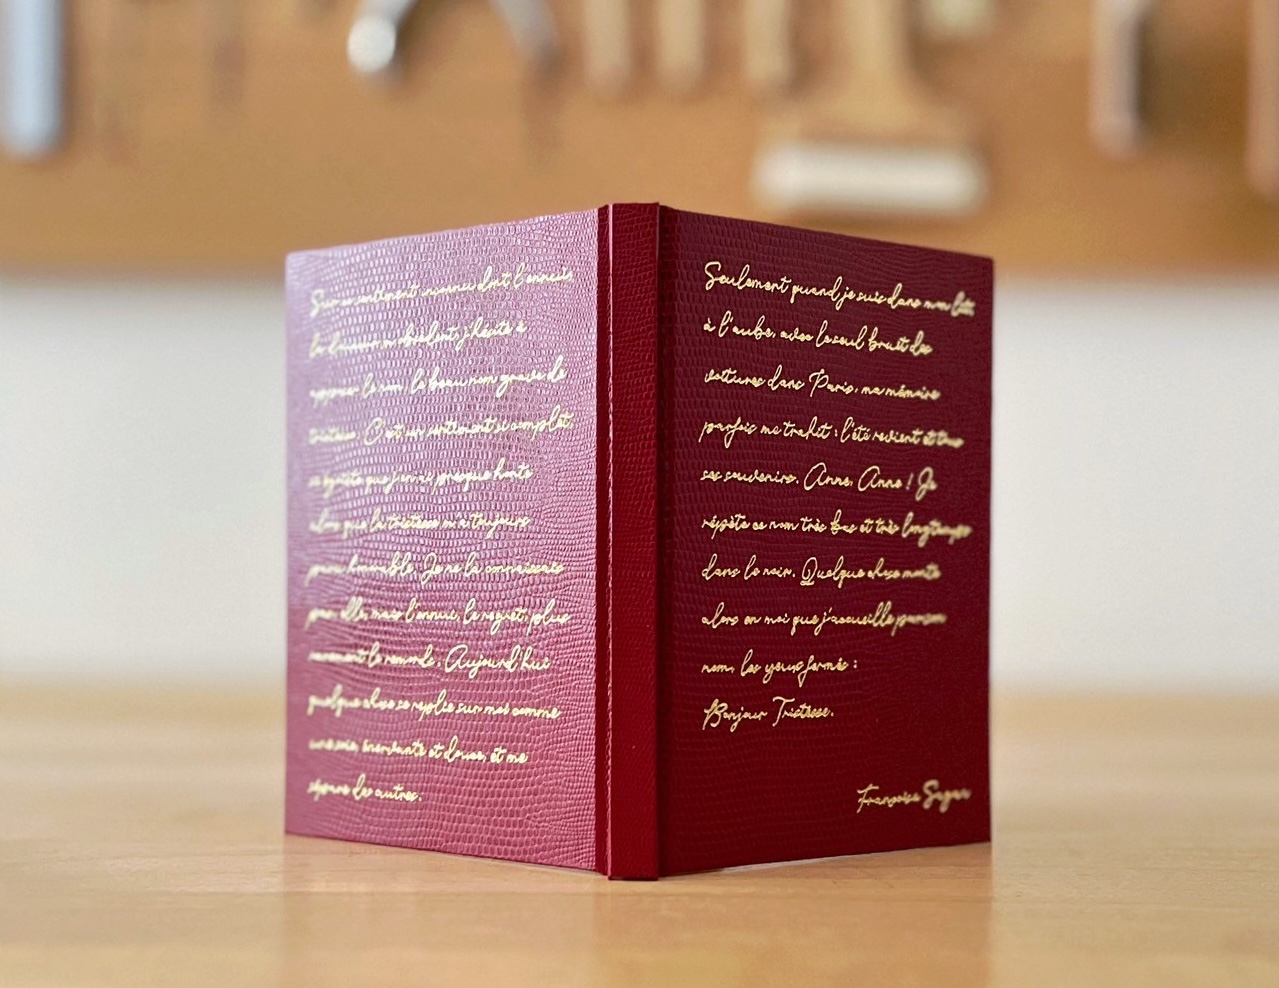 Sur ce sentiment inconnu dont l'ennui,
la douceur m'obsèdent, j'hésite à
apposer le nom, le beau nom grave de
tristesse. C'est un sentiment si complet,
si égoïste que j'en ai presque honte
alors que la tristesse m'a toujours
paru honorable. Je ne la connaissais
pas, elle, mais l'ennui, le regret, plus
rarement le remords. Aujourd'hui
quelque chose se replie sur moi comme
une soie, énervante et douce, et me
sépare des autres.
Seulement quand je suis dans mon lit,
à l'aube, avec le seul bruit des
voitures dans Paris, ma mémoire
parfois me trahit : l'été revient et tous
ses souvenirs. Anne, Anne ! Je
répète ce nom très bas et très longtemps
dans le noir. Quelque chose monte
alors en moi que j'accueille par son
nom, les yeux fermés :
Bonjour Tristesse.
Françoise Sagan